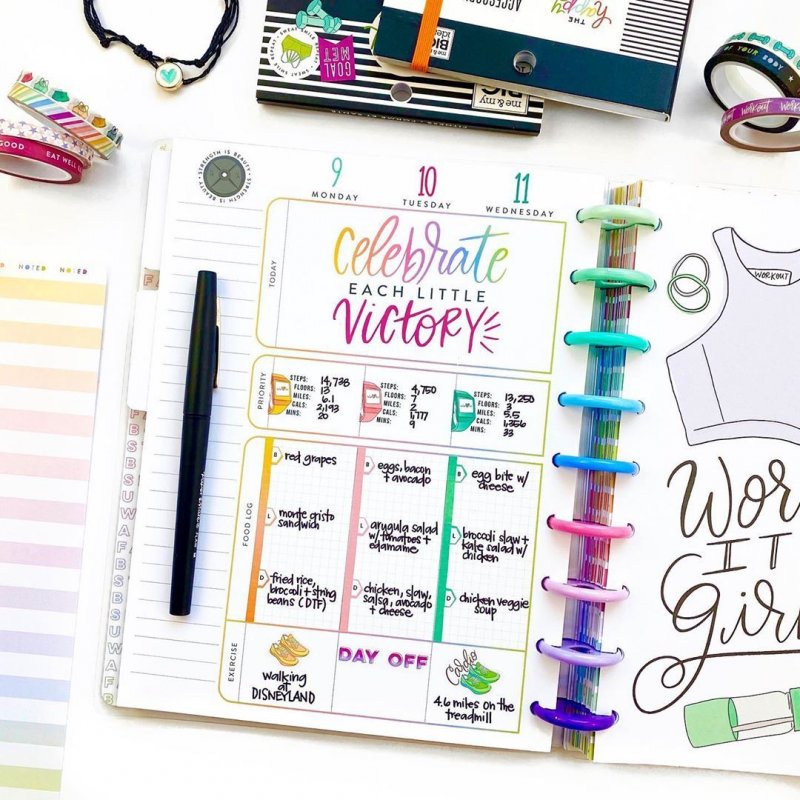 THE
happy
ACCESSORIES
me & my
BIG
ideas
GOAL
MET
me & my
BIG
OF YOUR BODY
WORKOUT
GOOD
EAT WELL
NOTED NOTED NOTED
STRENGTH IS BEAUTY • STRENGTH IS BEAUTY
9
MONDAY
10
TUESDAY
11
WEDNESDAY
TODAY
celebrate
EACH LITTLE
VICTORY
PRIORITY
STEPS: 14,738
FLOORS: 13
MILES: 6.1
CALS: 2,193
MINS: 20
STEPS: 4,750
FLOORS: 7
MILES: 2
CALS: 1,777
MINS: 9
STEPS: 13,250
FLOORS: 3
MILES: 5.5
CALS: 1,356
MINS: 33
FOOD LOG
B
red grapes
B
eggs, bacon
+ avocado
B
egg bite w/
cheese
L
monte cristo
sandwich
L
arugula salad
w/ tomatoes +
edamame
L
broccoli slaw +
kale salad w/
chicken
D
fried rice,
brocoli + string
beans (DTF)
D
chicken, slaw,
salsa, avocado
+ cheese
D
chicken veggie
soup
EXERCISE
walking
at
DISNEYLAND
DAY OFF
Cardio
4.6 miles on the
treadmill
WORKOUT
Work
IT
Girl